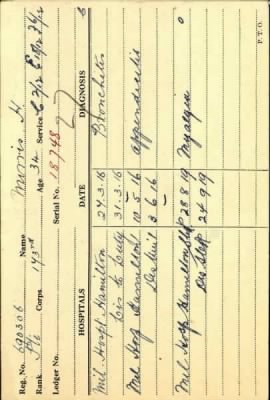 Reg. No. 690306 Name Morris, H.
Rank Pte Corps. 173rd Age 34 Service
Ledger No. Serial No. 18748
HOSPITALS DATE DIAGNOSIS
Mil. Hosp. Hamilton 24-3-16 Bronchitis
Dis to Duty 31-3-16
Mil Hosp Hamilton 10-5-16 Appendicitis
3-6-16
Mil Hosp Hamilton 28 8 19 Myalgia
24 9 19
P.T.O.